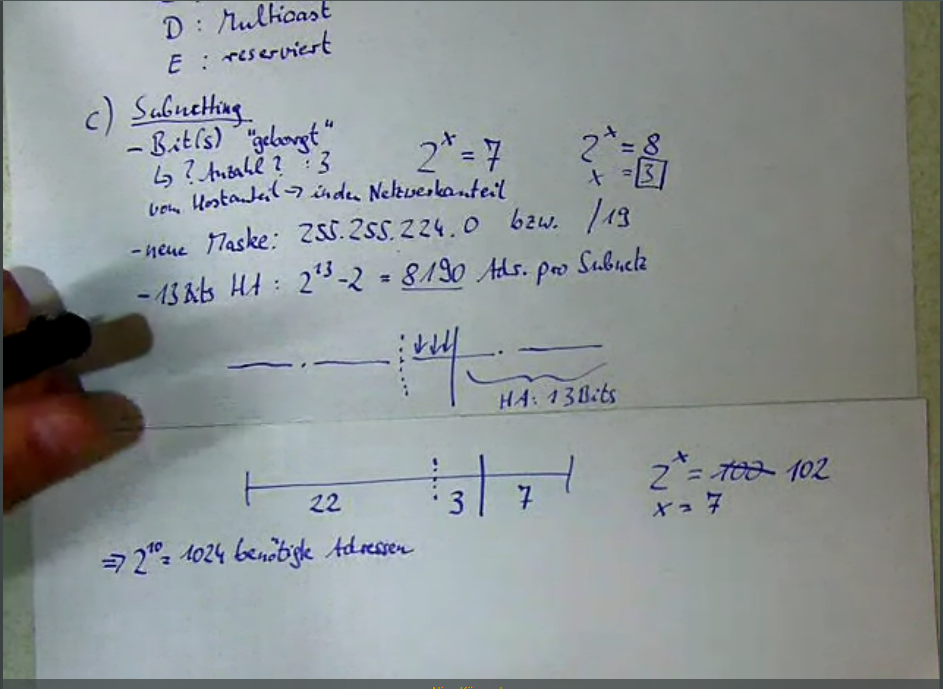 D : Multicast
E : reserviert
c) Subnetting
- Bit(s) "geborgt"
↳ ? Anzahl ? : 3
vom Hostanteil → in den Netzwerkanteil
2^x = 7
2^x = 8
x = 3
- neue Maske: 255.255.224.0 bzw. /19
- 13 Bits HA : 2^13 - 2 = 8190 Ads. pro Subnetz
HA: 13 Bits
22 3 7
2^x = 100 102
x = 7
⇒ 2^10 = 1024 benötigte Adressen